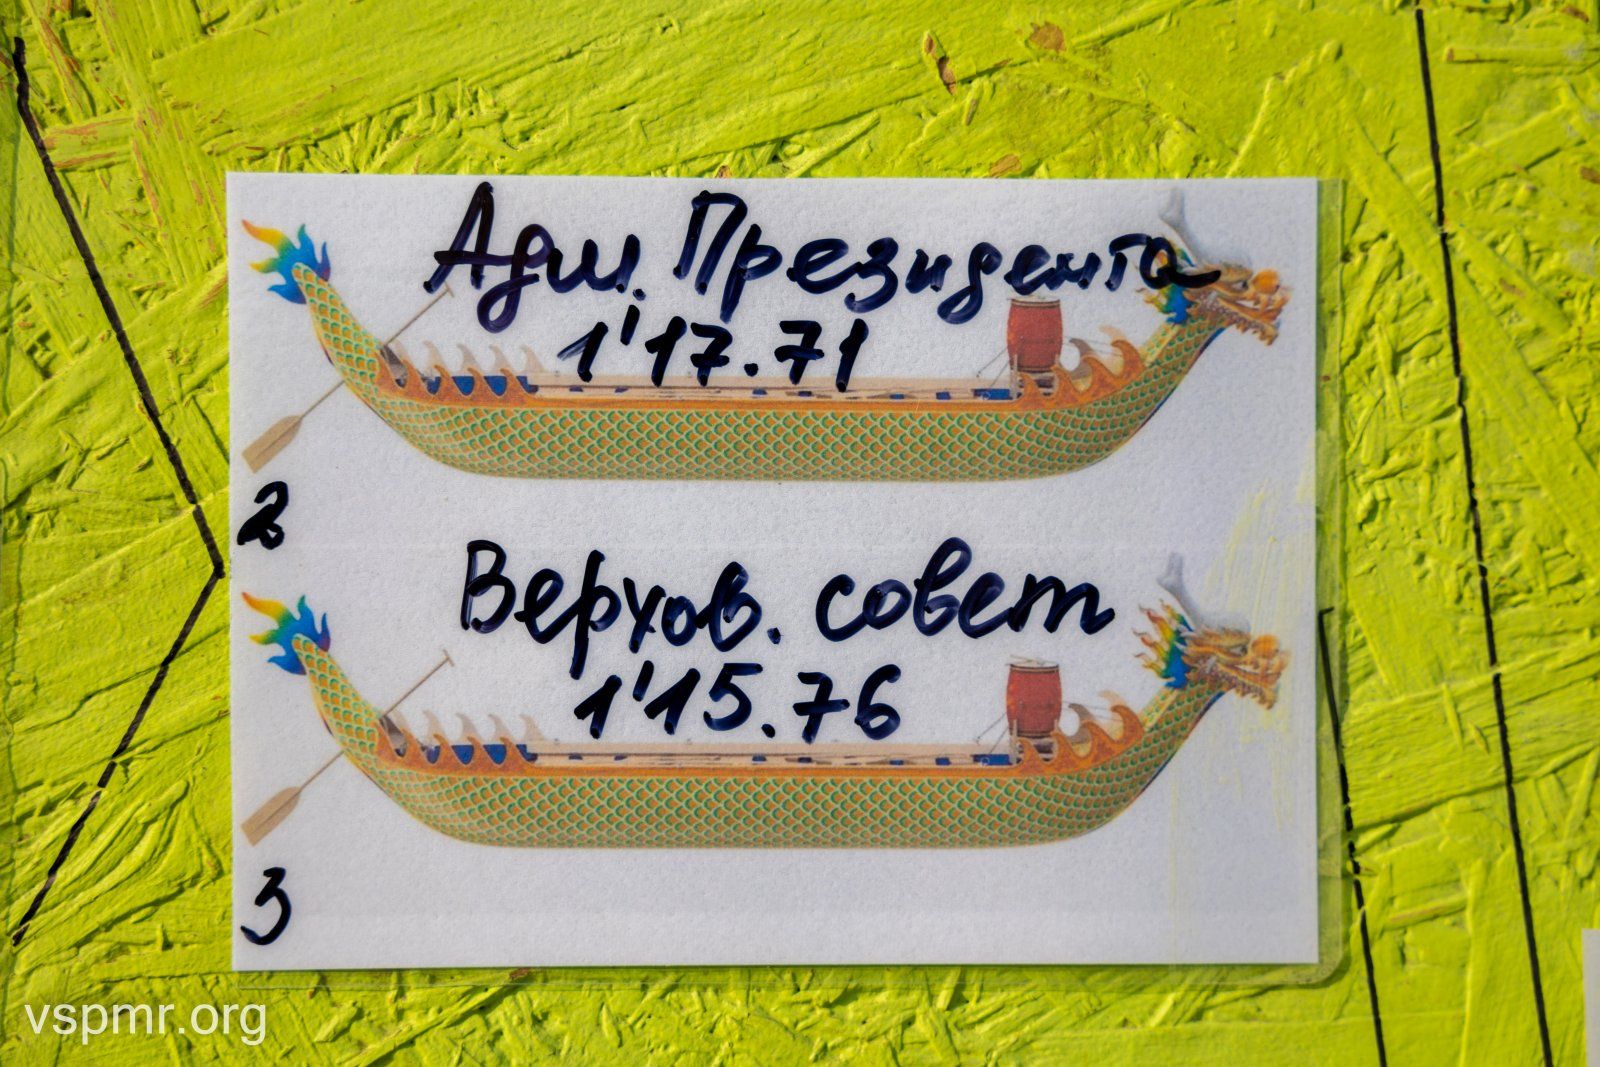 Адм. Президента
1'17.71
2
Верхов. совет
1'15.76
3
vspmr.org